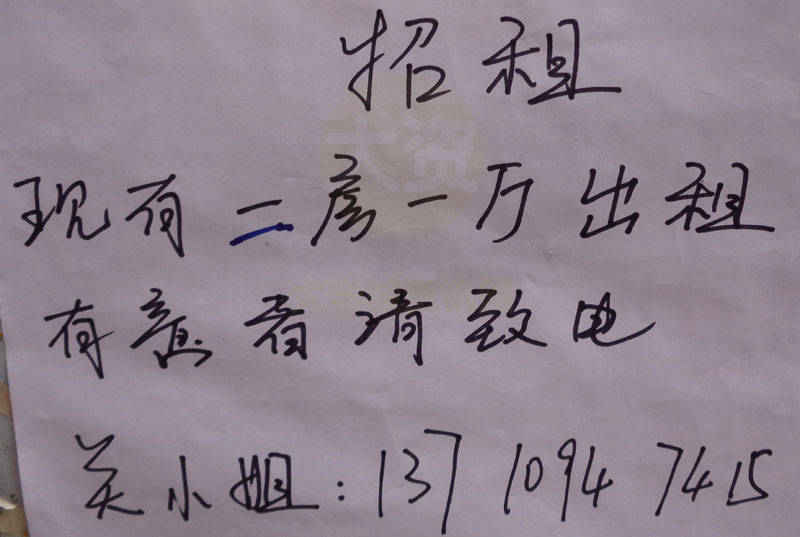 招租
现有二房一厅出租
有意者请致电
关小姐：137 1094 7415